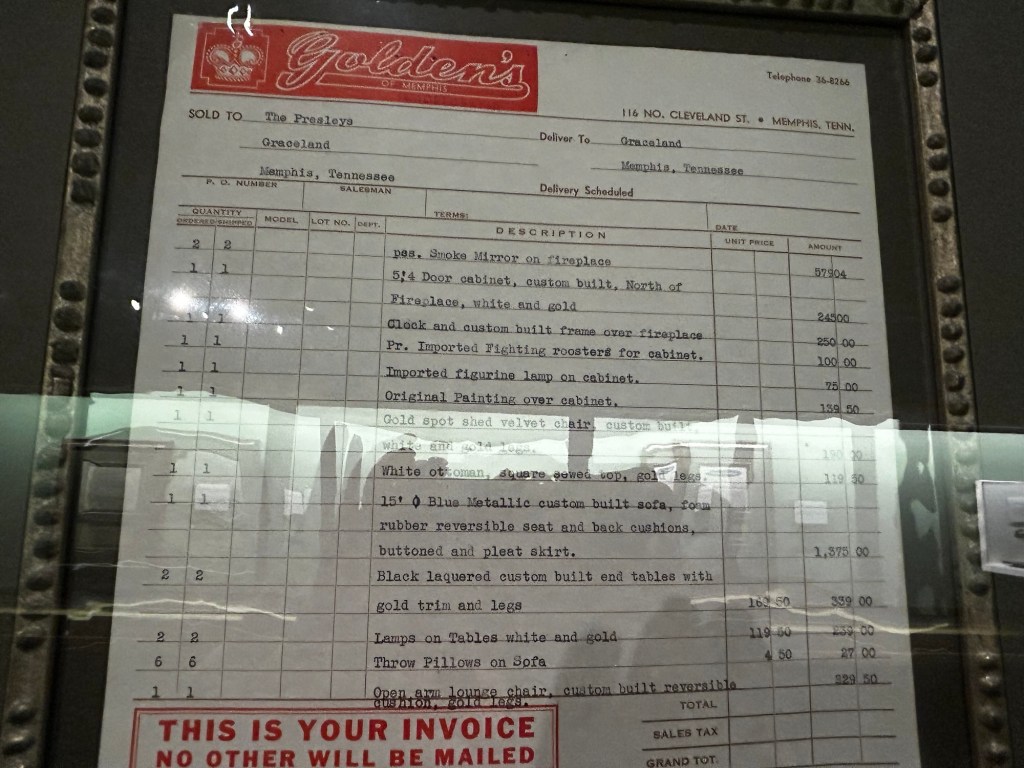 Golden's
OF MEMPHIS
Telephone 36-8266
116 NO. CLEVELAND ST. • MEMPHIS, TENN.
SOLD TO The Presleys
Deliver To Graceland
Graceland
Memphis, Tennessee
Memphis, Tennessee
P. O. NUMBER SALESMAN Delivery Scheduled
TERMS: DATE
QUANTITY
ORDERED SHIPPED MODEL LOT NO. DEPT. DESCRIPTION UNIT PRICE AMOUNT
2 2 pes. Smoke Mirror on fireplace 57904
1 1 5'4 Door cabinet, custom built, North of
Fireplace, white and gold 24500
1 1 Clock and custom built frame over fireplace 250 00
1 1 Pr. Imported Fighting roosters for cabinet. 100 00
1 1 Imported figurine lamp on cabinet. 75 00
1 1 Original Painting over cabinet. 139 50
1 1 Gold spot shed velvet chair, custom built,
white and gold legs. 190 00
1 1 White ottoman, square sewed top, gold legs. 119 50
1 1 15' Blue Metallic custom built sofa, foam
rubber reversible seat and back cushions,
buttoned and pleat skirt. 1,375 00
2 2 Black laquered custom built end tables with
gold trim and legs 50 339 00
2 2 Lamps on Tables white and gold 119 50 239 00
6 6 Throw Pillows on Sofa 4 50 27 00
1 1 Open arm lounge chair, custom built reversible 329 50
cushion, gold legs.
TOTAL
SALES TAX
GRAND TOT.
THIS IS YOUR INVOICE
NO OTHER WILL BE MAILED